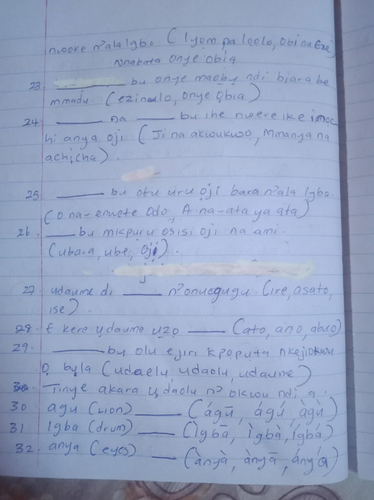 nwoke n'ala Igbo (Iyom pa leelo, Obi na Eze
nnabata onye obia
23. ______ bu onye mabu ndi biara be
mmadu (ezinaulo, Onye Obia)
24. ______ na ______ bu ihe nwere ike inoc
hi anya oji (Ji na akwukwo, Mmanya na
achicha).
25. ______ bu otu uru oji bara n'ala Igbo.
(O na-enwete Odo, A na-ata ya ata)
26. ______ bu mkpuru osisi oji na ami
(ubara, ube, oji).
27. udaume di ______ n'onuogugu (ire, asato,
ise).
28. E kere udaume uzo ______ (ato, ano, abuo)
29. ______ bu olu ejiri kpoputa nkejiokwu
O bula (udaelu, udaolu, udaume)
Tinye akara udaolu n'okwu ndi a
30 agu (Lion) ______ (ágū, ágú, àgú)
31 Igba (drum) ______ (Ìgbā, ìgbà, ígbá)
32. anya (eyes) ______ (ànyà, ànyā, ányá)